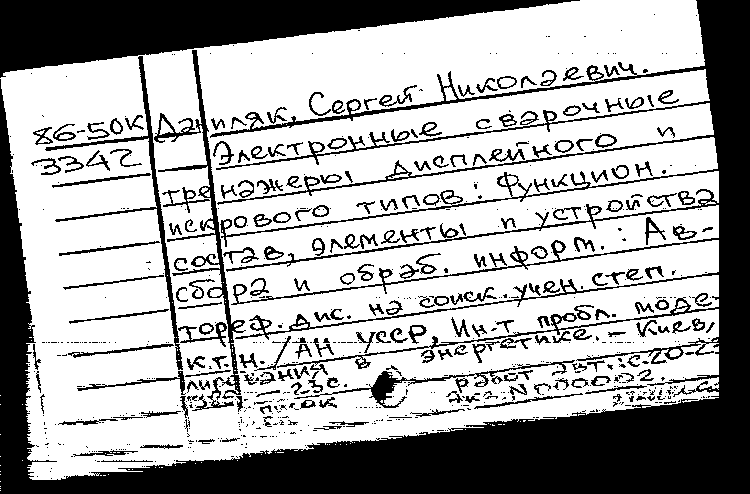 86-50К Даниляк, Сергей Николаевич.
3342 Электронные сварочные
тренажеры дисплейного и
искрового типов: Функцион.
состав, элементы и устройства
сбора и обраб. информ.: Ав-
тореф. дис. на соиск. учен. степ.
к.т.н. / АН УССР, Ин-т пробл. моде-
лирования в энергетике. – Киев,
– 23 с. работ авт.: с. 20-23
экз. N 000002.